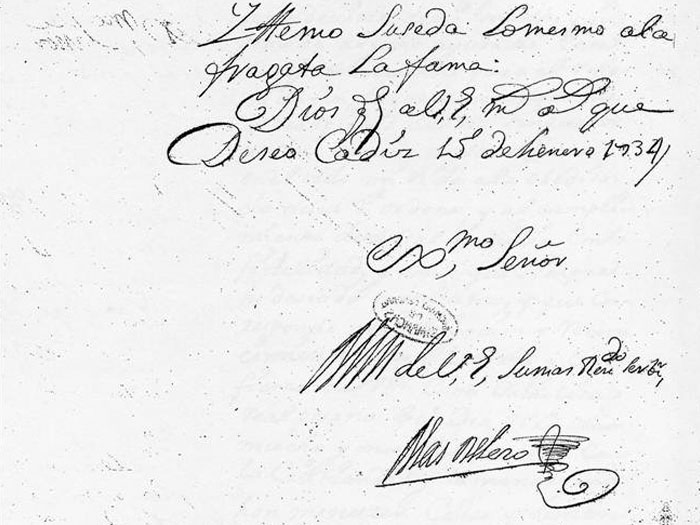 Y ttemo Suseda Lomesmo ala
fragata La fama:
Dios g.e a V.E. m.s a.s que
Deseo Cadiz 15 de henero 1734
Ex.mo Señor
de V.E. Sumas Ren.do Ser.r
Blas de Lezo